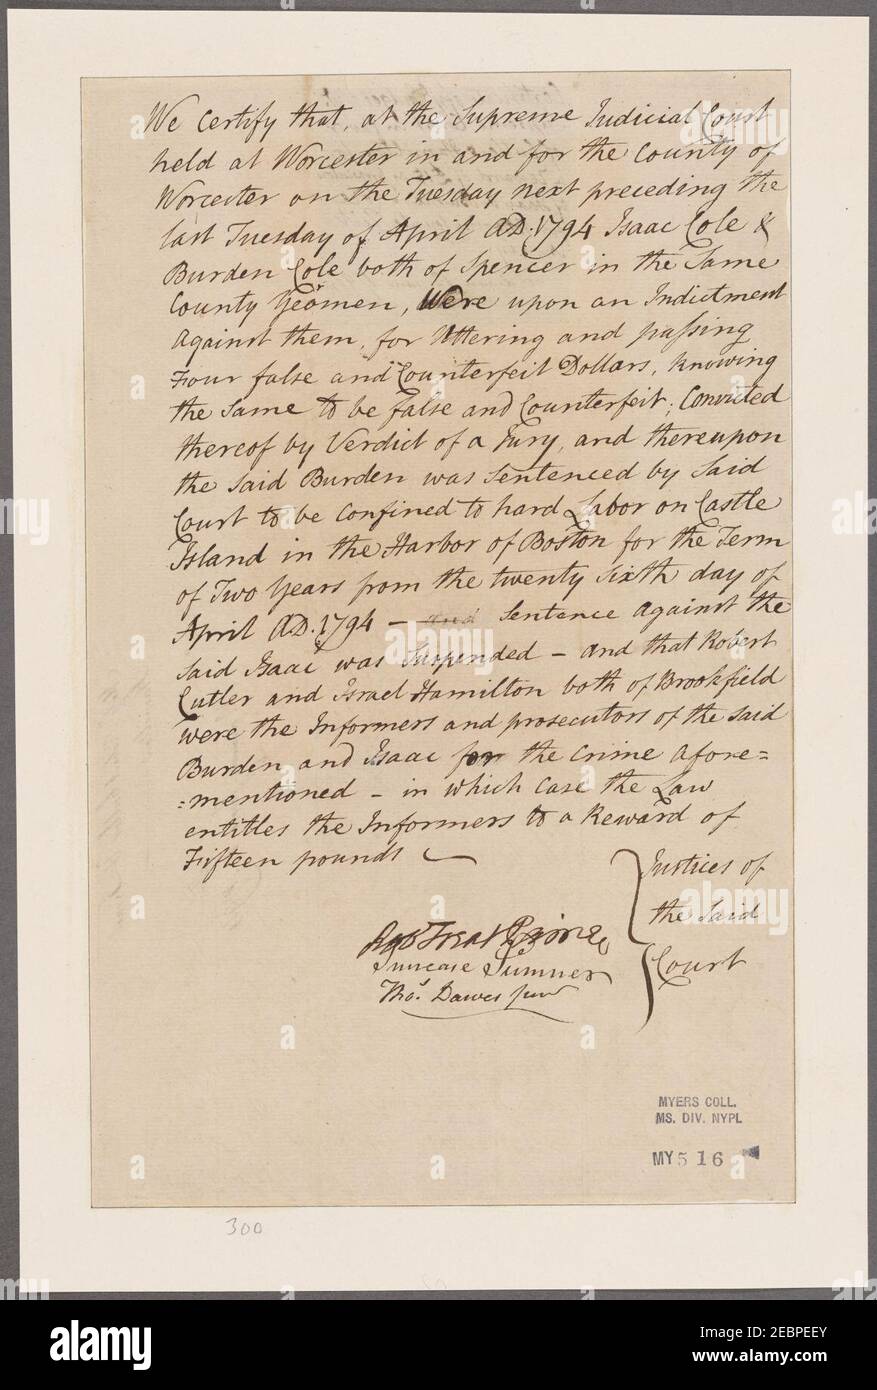 We Certify that, at the Supreme Judicial Court
held at Worcester in and for the County of
Worcester on the Tuesday next preceding the
last Tuesday of April AD. 1794 Isaac Cole &
Burden Cole both of Spencer in the Same
County Yeomen, were upon an Indictment
against them, for Uttering and passing
Four false and Counterfeit Dollars, knowing
the Same to be false and Counterfeit; Convicted
thereof by Verdict of a Jury, and thereupon
the Said Burden was Sentenced by Said
Court to be confined to hard Labor on Castle
Island in the Harbor of Boston for the Term
of Two Years from the twenty Sixth day of
April AD. 1794 – and Sentence against the
Said Isaac was Suspended – and that Robert
Cutler and Israel Hamilton both of Brookfield
were the Informers and prosecutors of the Said
Burden and Isaac for the Crime afore=
=mentioned – in which Case the Law
entitles the Informers to a Reward of
Fifteen pounds
Justices of
the Said
Court
Robt Treat Paine
Increase Sumner
Thos. Dawes junr
MYERS COLL.
MS. DIV. NYPL
MY 516
300
alamy
Image ID: 2EBPEEY
www.alamy.com